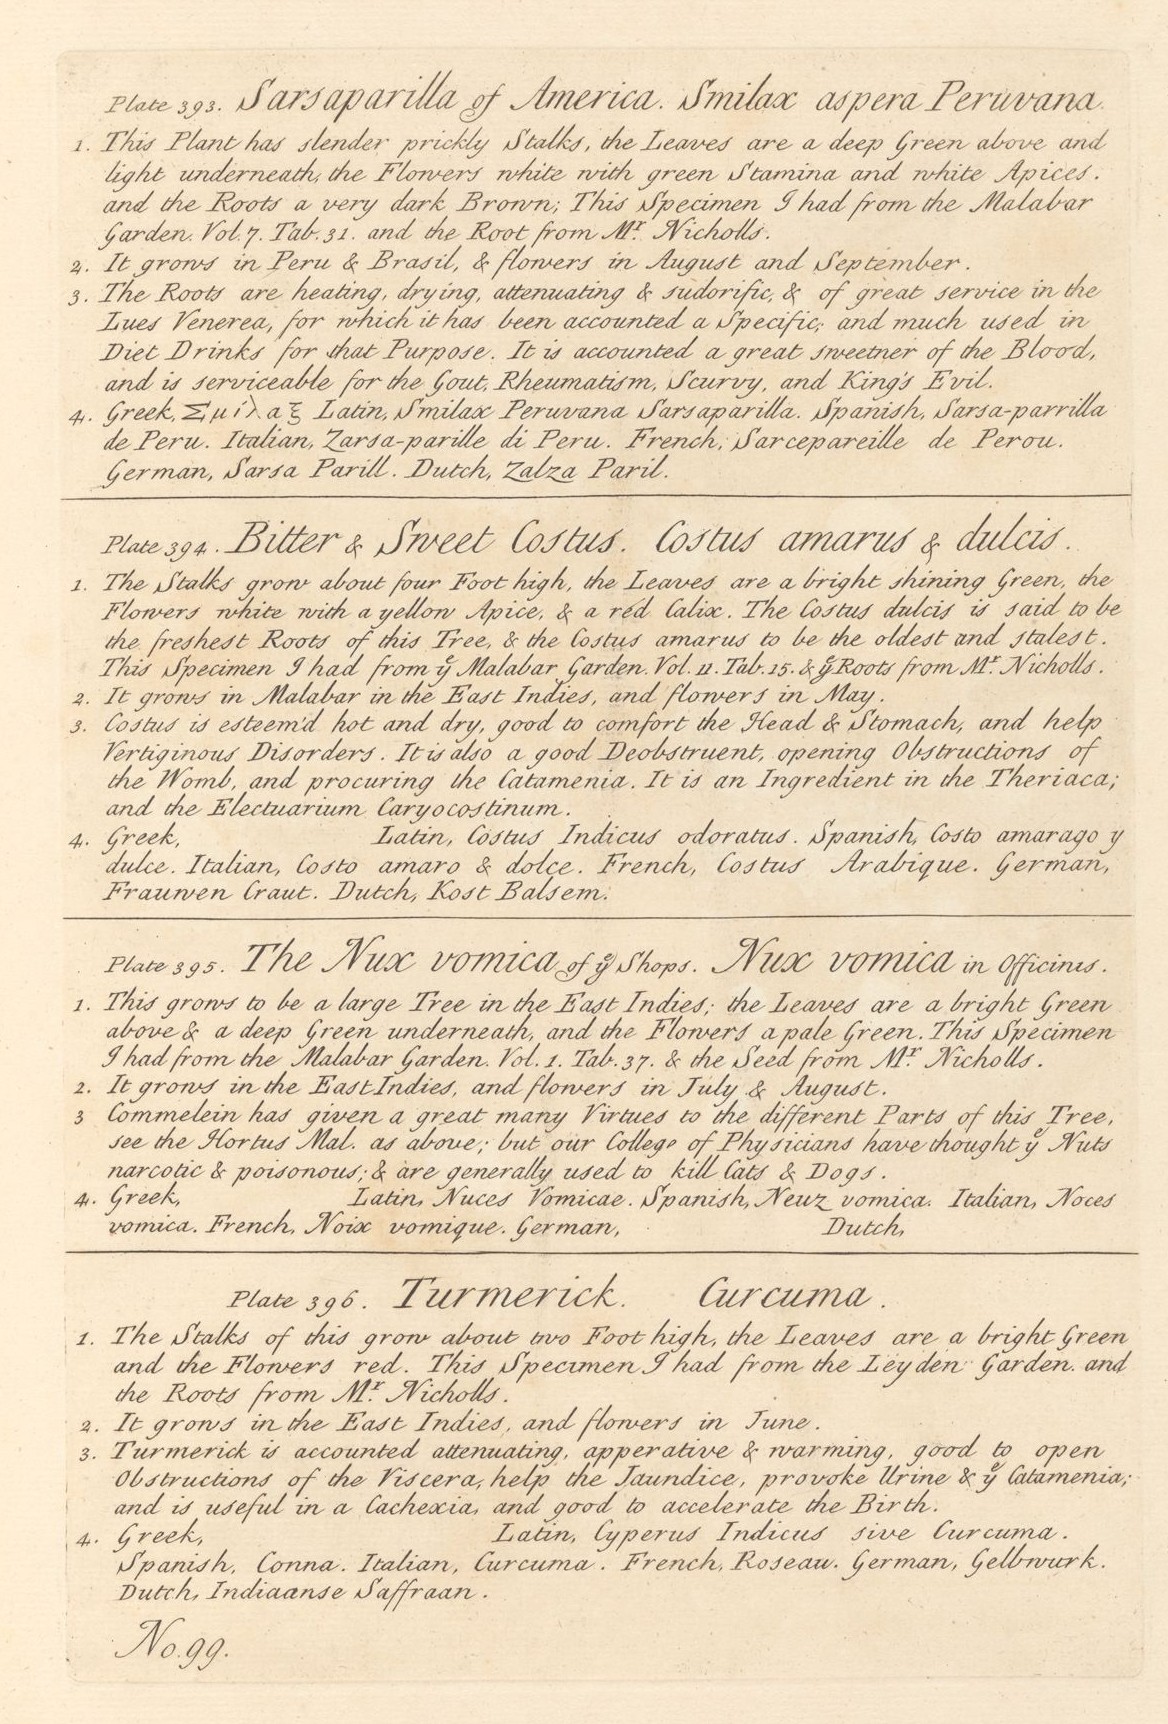 Plate 393. Sarsaparilla of America. Smilax aspera Peruvana.
1. This Plant has slender prickly Stalks, the Leaves are a deep Green above and
light underneath, the Flowers white with green Stamina and white Apices.
and the Roots a very dark Brown; This Specimen I had from the Malabar
Garden. Vol. 7. Tab. 31. and the Root from Mr. Nicholls.
2. It grows in Peru & Brasil, & flowers in August and September.
3. The Roots are heating, drying, attenuating & sudorific, & of great service in the
Lues Venerea, for which it has been accounted a Specific; and much used in
Diet Drinks for that Purpose. It is accounted a great sweetner of the Blood,
and is serviceable for the Gout, Rheumatism, Scurvy, and King's Evil.
4. Greek, Σμίλαξ Latin, Smilax Peruvana Sarsaparilla. Spanish, Sarsa-parrilla
de Peru. Italian, Zarsa-parille di Peru. French, Sarcepareille de Perou.
German, Sarsa Parill. Dutch, Zalza Paril.
Plate 394. Bitter & Sweet Costus. Costus amarus & dulcis.
1. The Stalks grow about four Foot high, the Leaves are a bright shining Green, the
Flowers white with a yellow Apice, & a red Calix. The Costus dulcis is said to be
the freshest Roots of this Tree, & the Costus amarus to be the oldest and stalest.
This Specimen I had from ye Malabar Garden. Vol. 11. Tab. 15. & ye Roots from Mr. Nicholls.
2. It grows in Malabar in the East Indies, and flowers in May.
3. Costus is esteem'd hot and dry, good to comfort the Head & Stomach, and help
Vertiginous Disorders. It is also a good Deobstruent, opening Obstructions of
the Womb, and procuring the Catamenia. It is an Ingredient in the Theriaca;
and the Electuarium Caryocostinum.
4. Greek, Latin, Costus Indicus odoratus. Spanish, Costo amarago y
dulce. Italian, Costo amaro & dolce. French, Costus Arabique. German,
Frauwen Craut. Dutch, Kost Balsem.
Plate 395. The Nux vomica of ye Shops. Nux vomica in Officinis.
1. This grows to be a large Tree in the East Indies; the Leaves are a bright Green
above & a deep Green underneath, and the Flowers a pale Green. This Specimen
I had from the Malabar Garden. Vol. 1. Tab. 37. & the Seed from Mr. Nicholls.
2. It grows in the East Indies, and flowers in July & August.
3 Commelein has given a great many Virtues to the different Parts of this Tree,
see the Hortus Mal. as above; but our College of Physicians have thought ye Nuts
narcotic & poisonous; & are generally used to kill Cats & Dogs.
4. Greek, Latin, Nuces Vomicae. Spanish, Neuz vomica. Italian, Noces
vomica. French, Noix vomique. German, Dutch,
Plate 396. Turmerick. Curcuma.
1. The Stalks of this grow about two Foot high, the Leaves are a bright Green
and the Flowers red. This Specimen I had from the Leyden Garden. and
the Roots from Mr. Nicholls.
2. It grows in the East Indies, and flowers in June.
3. Turmerick is accounted attenuating, apperative & warming, good to open
Obstructions of the Viscera, help the Jaundice, provoke Urine & ye Catamenia;
and is useful in a Cachexia, and good to accelerate the Birth.
4. Greek, Latin, Cyperus Indicus sive Curcuma.
Spanish, Conna. Italian, Curcuma. French, Roseau. German, Gelbwurk.
Dutch, Indiaanse Saffraan.
No. 99.